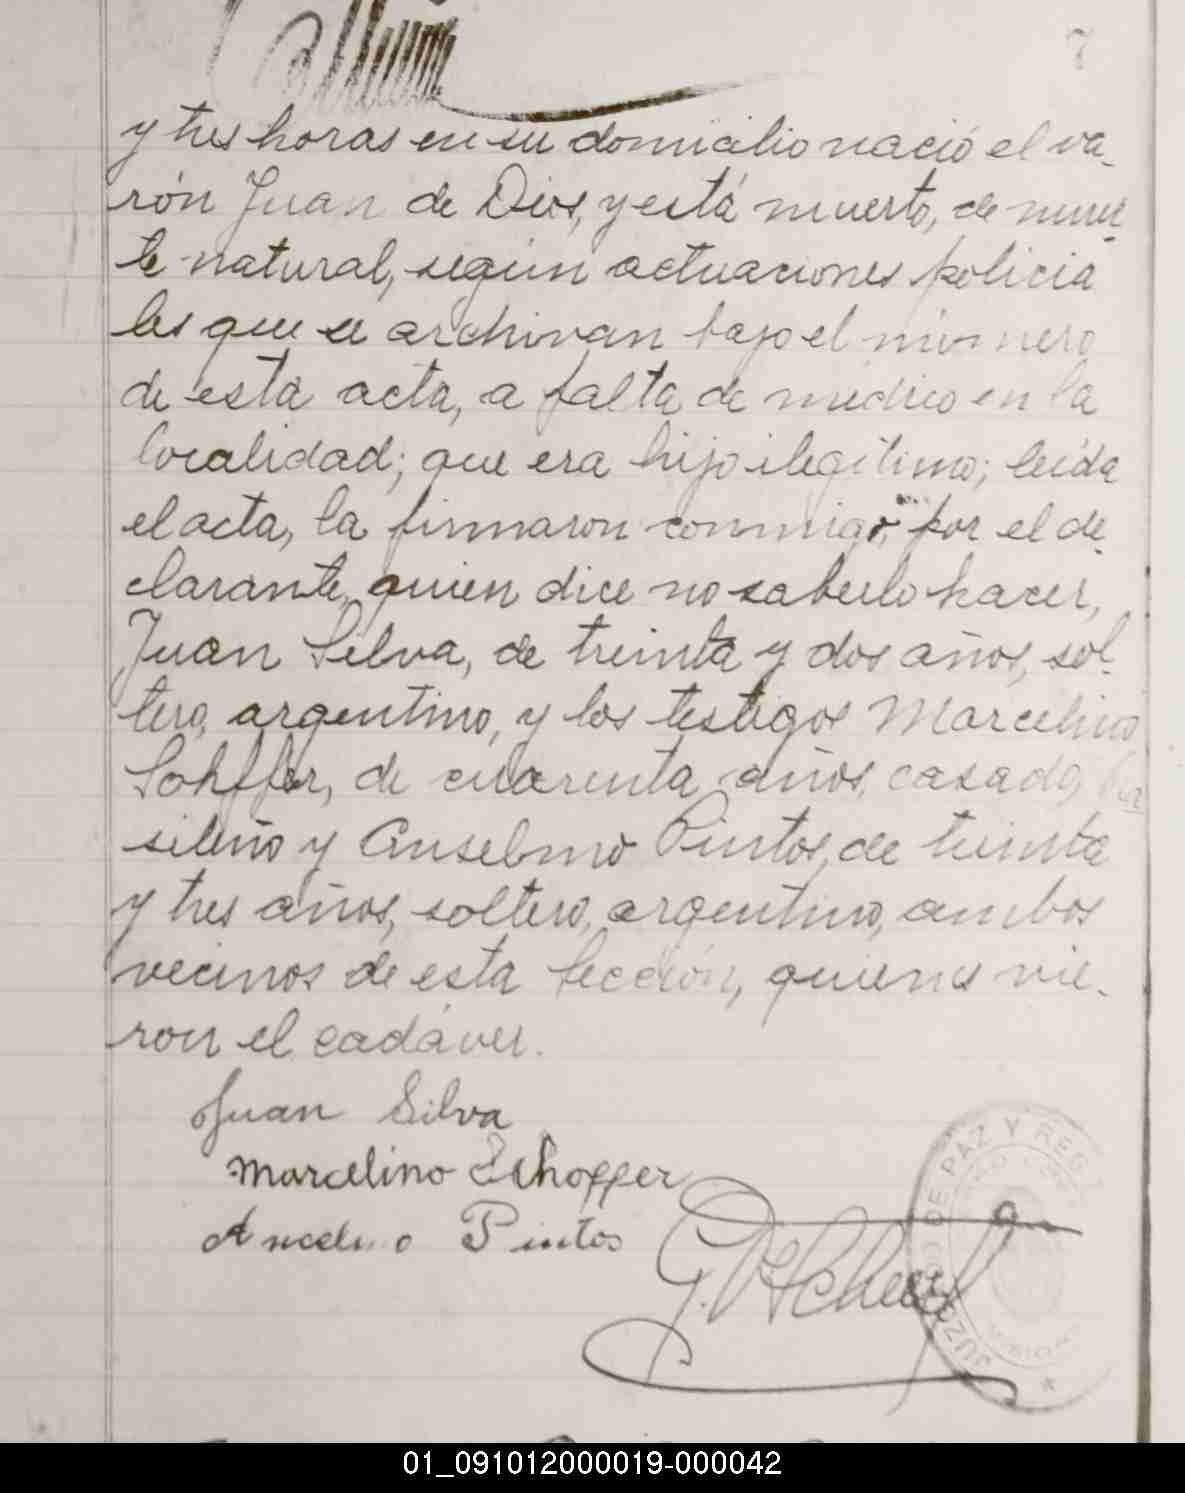 7
y tres horas en su domicilio nació el va-
rón Juan de Dios, y está muerto, de muer-
te natural, según actuaciones policia
les que se archivan bajo el número
de esta acta, a falta de médico en la
localidad; que era hijo ilegítimo; leída
el acta, la firmaron conmigo, por el de-
clarante, quien dice no saberlo hacer,
Juan Silva, de treinta y dos años, sol-
tero, argentino, y los testigos Marcelino
Sohffer, de cuarenta años, casado, bra-
sileño y Anselmo Pintos, de treinta
y tres años, soltero, argentino, ambos
vecinos de esta Sección, quienes vie-
ron el cadáver.
Juan Silva
Marcelino Schoffer
Ancelmo Pintos
JUZGADO DE PAZ Y REG
01_091012000019-000042